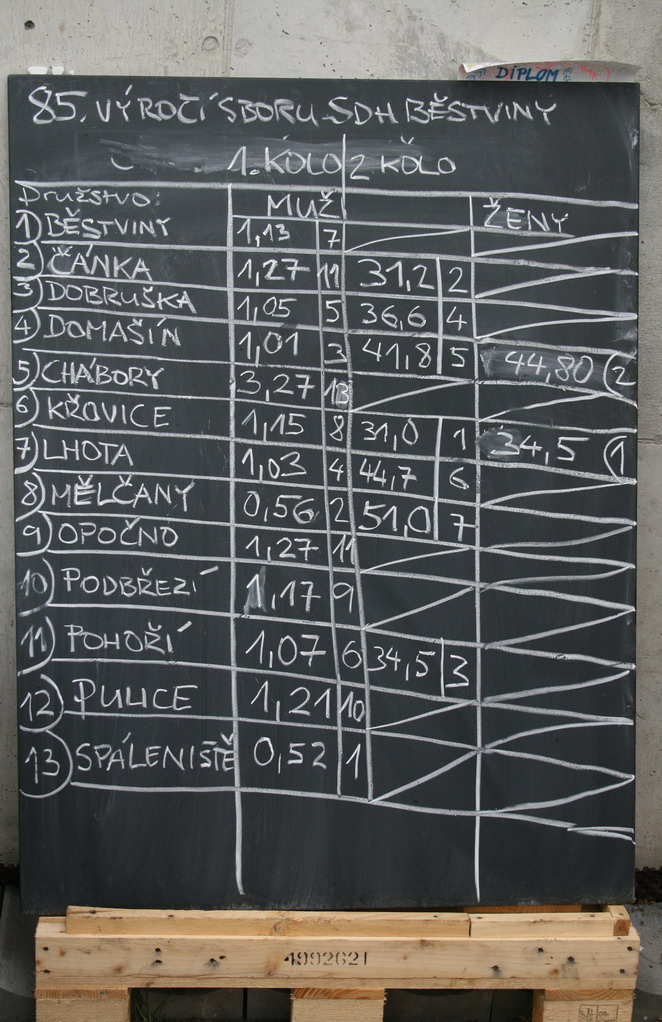 DIPLOM
85. VÝROČÍ SBORU SDH BĚSTVINY
1. KOLO 2 KOLO
Družstvo: MUŽ ŽENY
1) BĚSTVINY 1,13 7
2) ČÁNKA 1,27 11 31,2 2
3) DOBRUŠKA 1,05 5 36,6 4
4) DOMAŠÍN 1,01 3 41,8 5 44,80 (2
5) CHÁBORY 3,27 13
6) KŘOVICE 1,15 8 31,0 1 34,5 (1
7) LHOTA 1,03 4 44,7 6
8) MĚLČANY 0,56 2 51,0 7
9) OPOČNO 1,27 11
10) PODBŘEZÍ 1,17 9
11) POHOŘÍ 1,07 6 34,5 3
12) PULICE 1,21 10
13) SPÁLENIŠTĚ 0,52 1
4992621